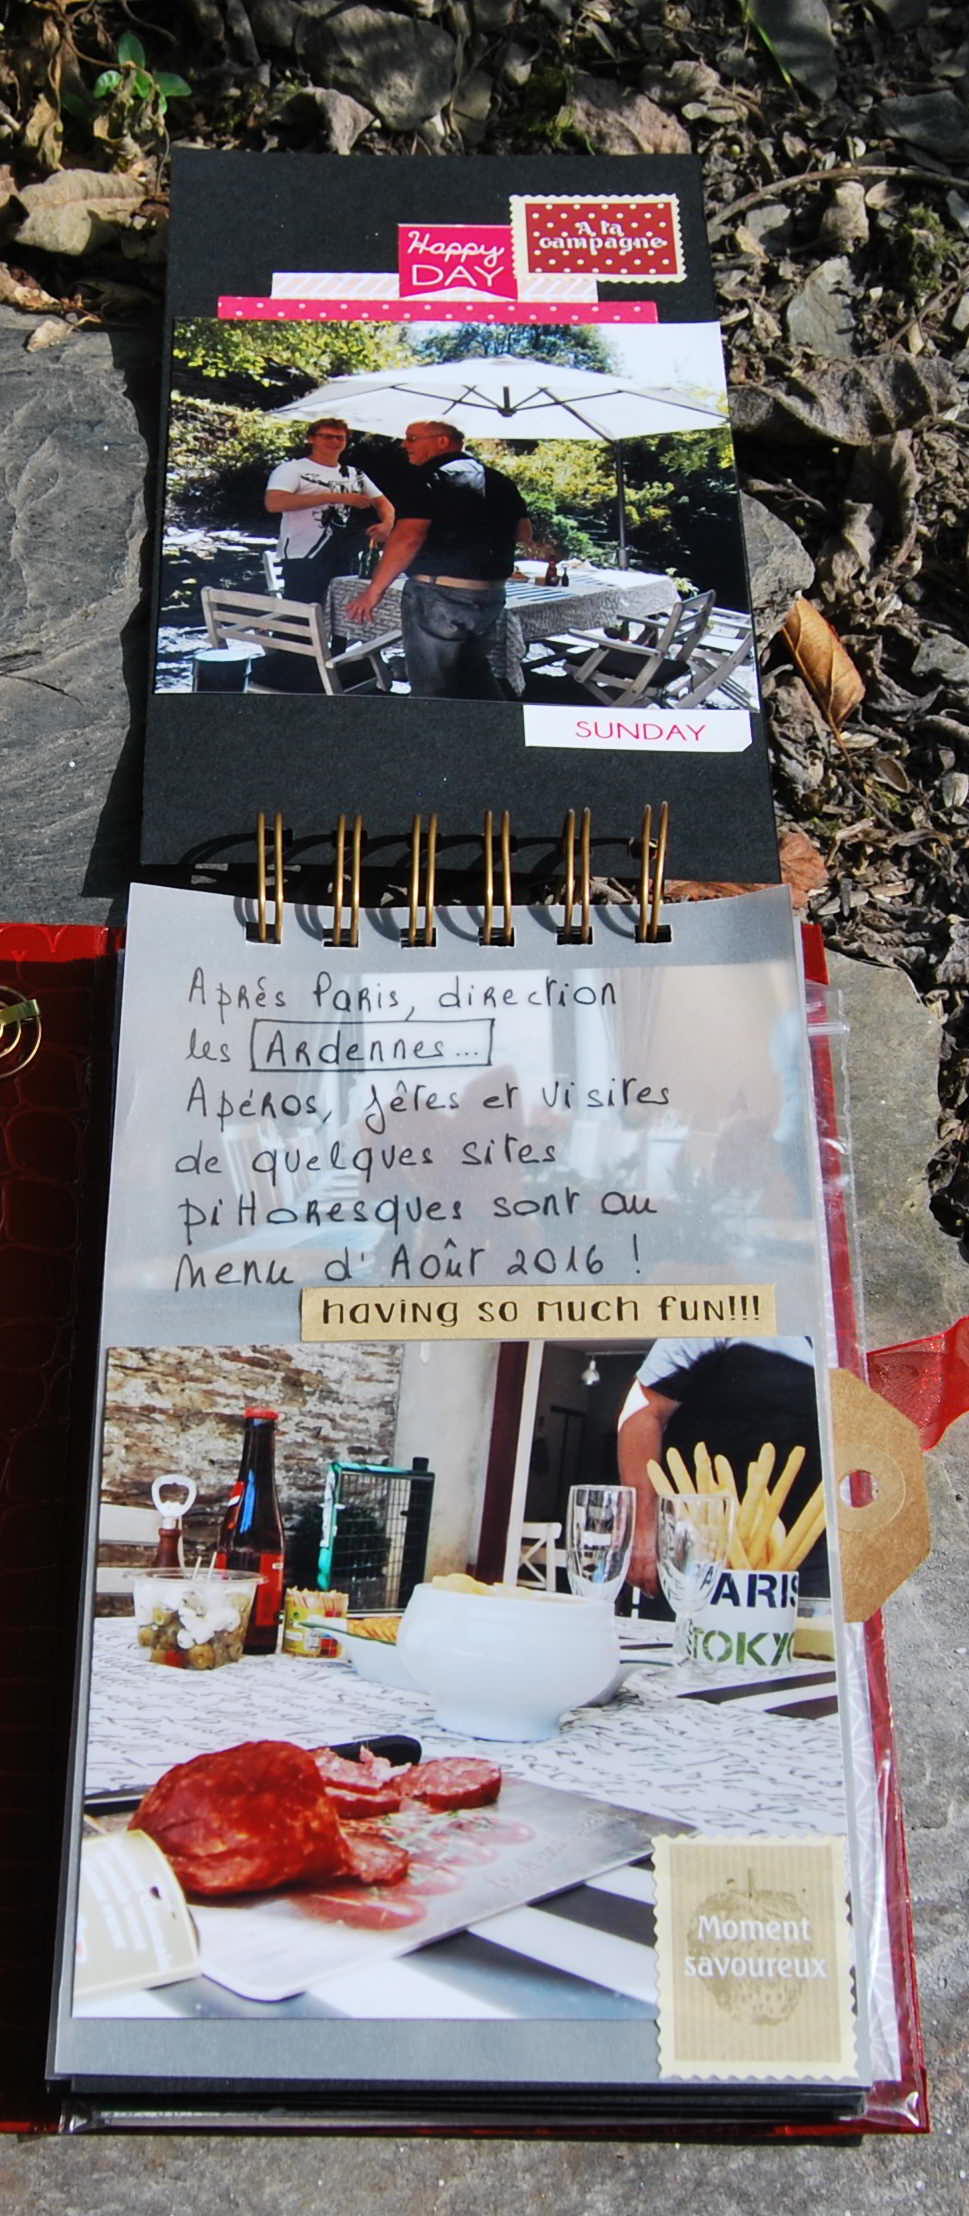 Happy
DAY
A la
campagne
SUNDAY
Aprés Paris, direction
les Ardennes...
Apéros, fêtes et visites
de quelques sites
pittoresques sont au
menu d'Août 2016 !
having so much fun!!!
PARIS
TOKYO
Moment
savoureux